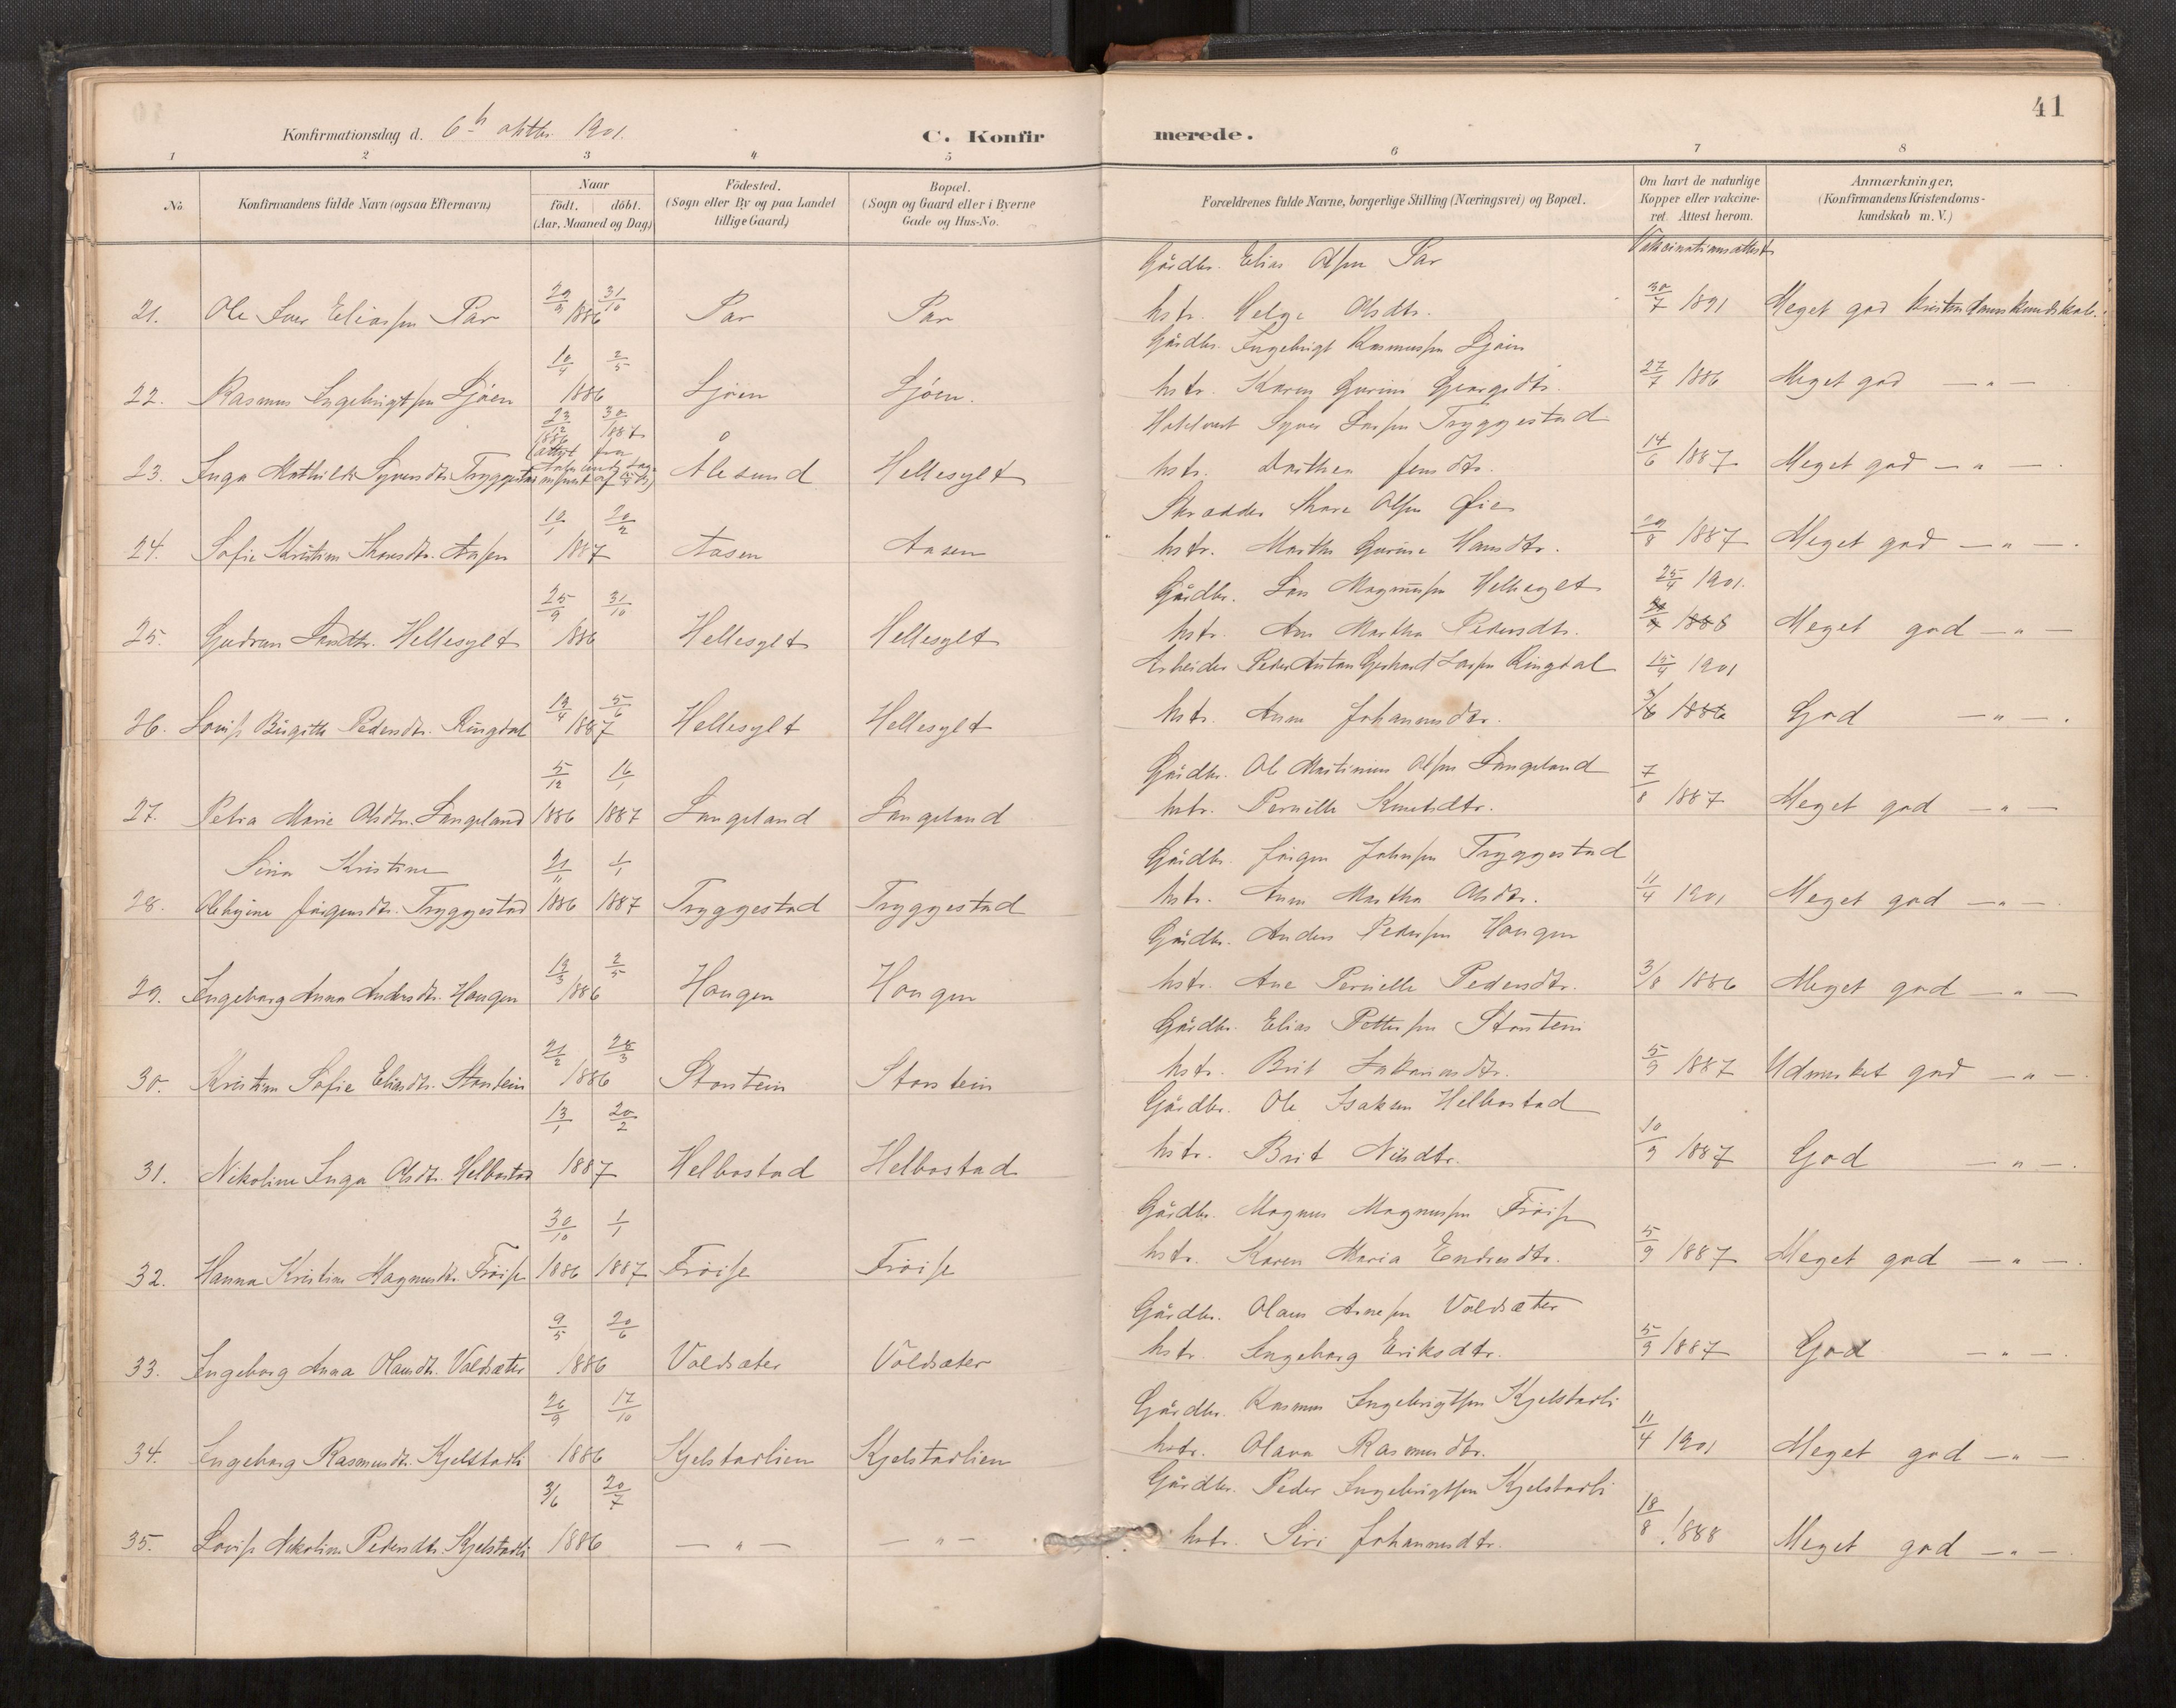 41
Konfirmationsdag d. 6 oktbr. 1901.
C. Konfirmerede.
1 2 3 4 5 6 7 8
No
Konfirmandens fulde Navn (ogsaa Efternavn)
Naar
födt. döbt.
(Aar, Maaned og Dag)
Födested.
(Sogn eller By og paa Landet
tillige Gaard)
Bopæl.
(Sogn og Gaard eller i Byerne
Gade og Hus-No.
Forældrenes fulde Navne, borgerlige Stilling (Næringsvei) og Bopæl.
Om havt de naturlige
Kopper eller vakcine-
ret. Attest herom.
Anmærkninger,
(Konfirmandens Kristendoms-
kundskab m. V.)
Vakcinationsattest
Gårdbr. Elias Olsen Par
21. Ole Iver Eliassen Par 29/3 31/10 1886 Par Par hstr. Helge Olsdtr. 30/7 1891 Meget god Kristendomskundskab.
Gårdbr. Ingebrigt Rasmussen Ljøen
22. Rasmus Ingebrigtsen Ljøen 10/4 2/5 1886 Ljøen Ljøen. hstr. Karen Gurine Georgsdtr. 27/7 1886 Meget god — " —
Hotelvert Syver Larsen Tryggestad
23. Inga Mathilde Syversdtr. Tryggestad 23/12 1886 30/1 1887 Ålesund Hellesylt hstr. Dorthea Jensdtr. 14/6 1887 Meget god — " — .
Skrædder Thore Olsen Øie
24. Sofie Kristine Thoresdtr. Aasen 10/1 20/2 1887 Aasen Aasen hstr. Marthe Gurine Hansdtr. 10/8 1887 Meget god — " — .
Gårdbr. Lars Magnussen Hellesylt 25/4 1901.
25. Gudrun Larsdtr. Hellesylt 25/9 31/10 1886 Hellesylt Hellesylt hstr. Ane Martha Pedersdtr. 1888 Meget god — " —
Arbeider Peder Antan Gerhard Larsen Ringdal 15/4 1901
26. Lovise Birgitte Pedersdtr. Ringdal 12/4 5/6 1887 Hellesylt Hellesylt hstr. Anne Johannesdtr. 3/6 1886 God — " — .
Gårdbr. Ole Martinius Olsen Langeland
27. Petra Marie Olsdtr. Langeland 5/12 1886 16/1 1887 Langeland Langeland hstr. Pernille Knutsdtr. 7/8 1887 Meget god — " —
Gårdbr. Jørgen Johnsen Tryggestad
Sina Kristine
28. Jørgensdtr. Tryggestad 21/11 1886 1/1 1887 Tryggestad Tryggestad hstr. Anne Martha Olsdtr. 11/4 1901 Meget god — " — .
Gårdbr. Anders Pedersen Haugen
29. Ingeborg Anna Andersdtr. Haugen 12/3 2/5 1886 Haugen Haugen hstr. Ane Pernille Pedersdtr. 3/8 1886 Meget god — " —
Gårdbr. Elias Pettersen Storstein
30. Kristine Sofie Eliasdtr. Storstein 21/2 28/3 1886 Storstein Storstein hstr. Brit Zakariasdtr. 5/9 1887 Udmerket god — " — .
Gårdbr. Ole Isaksen Helbostad
31. Nikoline Inga Olsdtr. Helbostad 13/1 20/2 1887 Helbostad Helbostad hstr. Brit Nilsdtr. 10/9 1887 God — " — .
Gårdbr. Magnus Magnussen Frøise
32. Hanna Kristine Magnusdtr. Frøise 30/10 1886 1/1 1887 Frøise Frøise hstr. Karen Maria Endresdtr. 5/9 1887 Meget god — " — .
Gårdbr. Olaus Arnesen Voldsæter
33. Ingeborg Anna Olausdtr. Voldsæter 9/5 20/6 1886 Voldsæter Voldsæter hstr. Ingeborg Eriksdtr. 5/9 1887 God — " — .
Gårdbr. Rasmus Ingebrigtsen Kjelstadli
34. Ingeborg Rasmusdtr. Kjelstadli 26/9 17/10 1886 Kjelstadlien Kjelstadlien hstr. Olava Rasmusdtr. 11/4 1901 Meget god — " —
Gårdbr. Peder Ingebrigtsen Kjelstadli
35. Lovise Nikoline Pedersdtr. Kjelstadli 3/6 20/7 1886 — " — — " — hstr. Siri Johannesdtr. 18/8 1888 Meget god — " — .